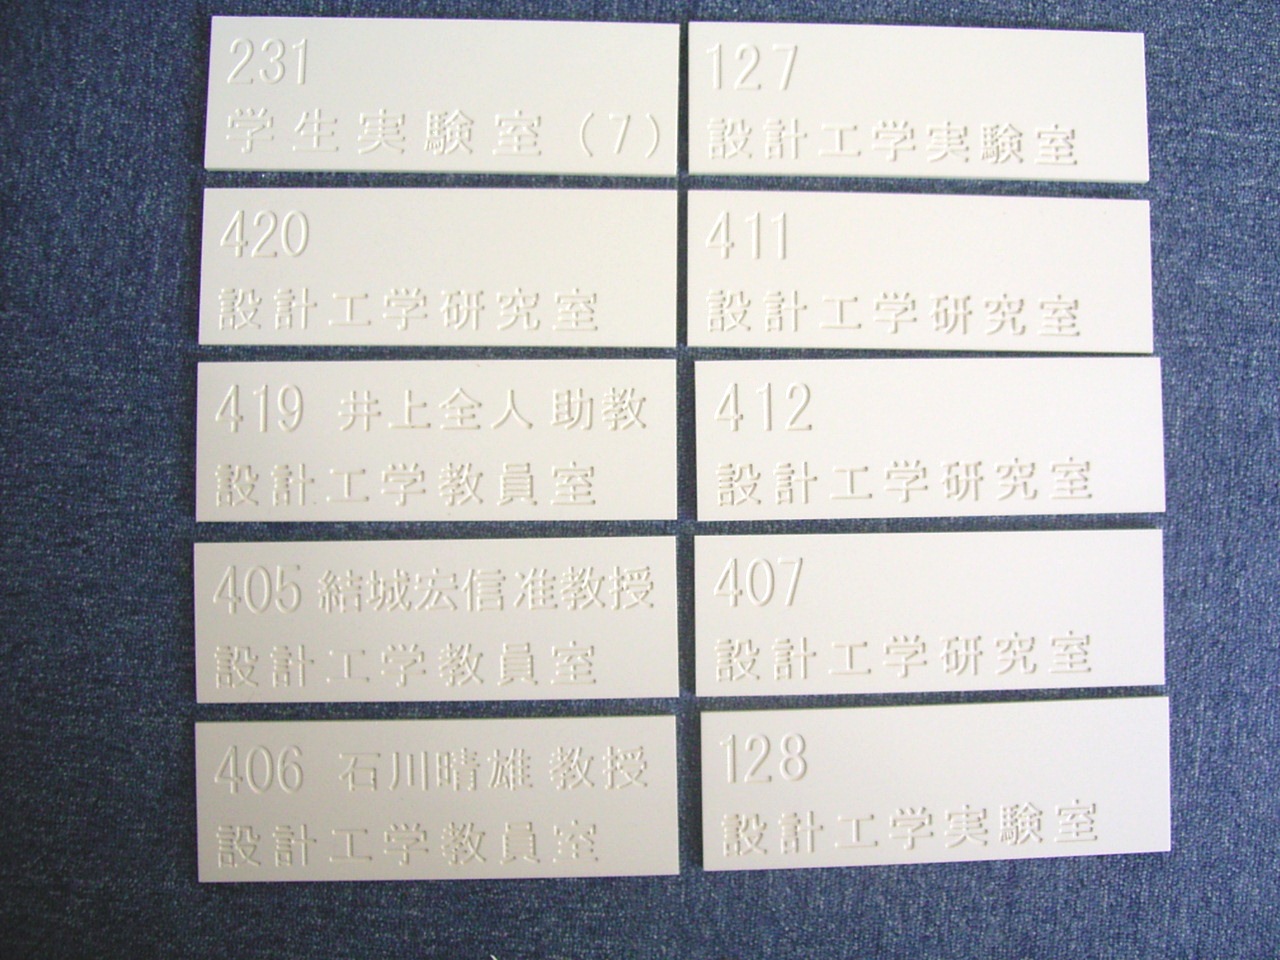 231
学生実験室（7）
420
設計工学研究室
419 井上全人 助教
設計工学教員室
405 結城宏信 准教授
設計工学教員室
406 石川晴雄 教授
設計工学教員室
127
設計工学実験室
411
設計工学研究室
412
設計工学研究室
407
設計工学研究室
128
設計工学実験室